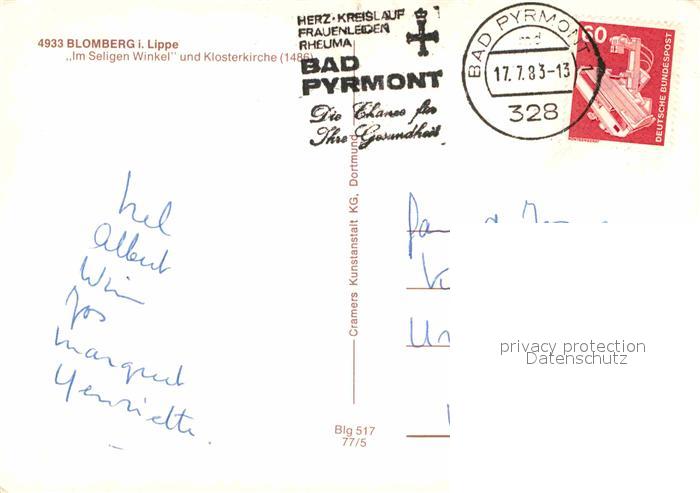 4933 BLOMBERG i. Lippe
„Im Seligen Winkel" und Klosterkirche (1486)
HERZ·KREISLAUF
FRAUENLEIDEN
RHEUMA
BAD
PYRMONT
Die Chance für
Ihre Gesundheit
BAD PYRMONT 1
17.7.83-13
328
60
DEUTSCHE BUNDESPOST
Albert
Wim
Jos
Margreet
Henriette.
Cramers Kunstanstalt KG, Dortmund
Blg 517
77/5
privacy protection
Datenschutz